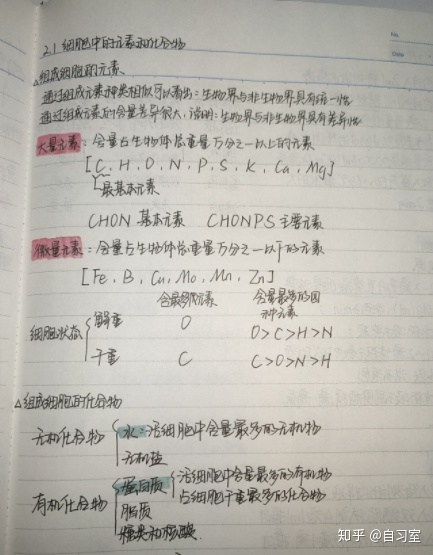 2.1 细胞中的元素和化合物
△组成细胞的元素
通过组成元素种类相似可以看出：生物界与非生物界具有统一性
通过组成元素的含量差异很大，说明：生物界与非生物界具有差异性
大量元素：含量占生物体总重量万分之一以上的元素
[C、H、O、N、P、S、K、Ca、Mg]
最基本元素
CHON 基本元素 CHONPS 主要元素
微量元素：含量占生物体总重量万分之一以下的元素
[Fe、B、Cu、Mo、Mn、Zn]
含最多元素 含量最多的四种元素
细胞状态
鲜重 O O>C>H>N
干重 C C>O>N>H
△组成细胞的化合物
无机化合物
水：活细胞中含量最多的无机物
无机盐
有机化合物
蛋白质 活细胞中含量最多的有机物
占细胞干重最多的化合物
脂质
糖类和核酸
No.
Date
知乎 @自习室